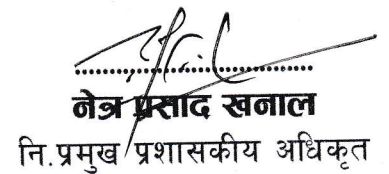 नेत्र प्रसाद खनाल
नि.प्रमुख प्रशासकीय अधिकृत